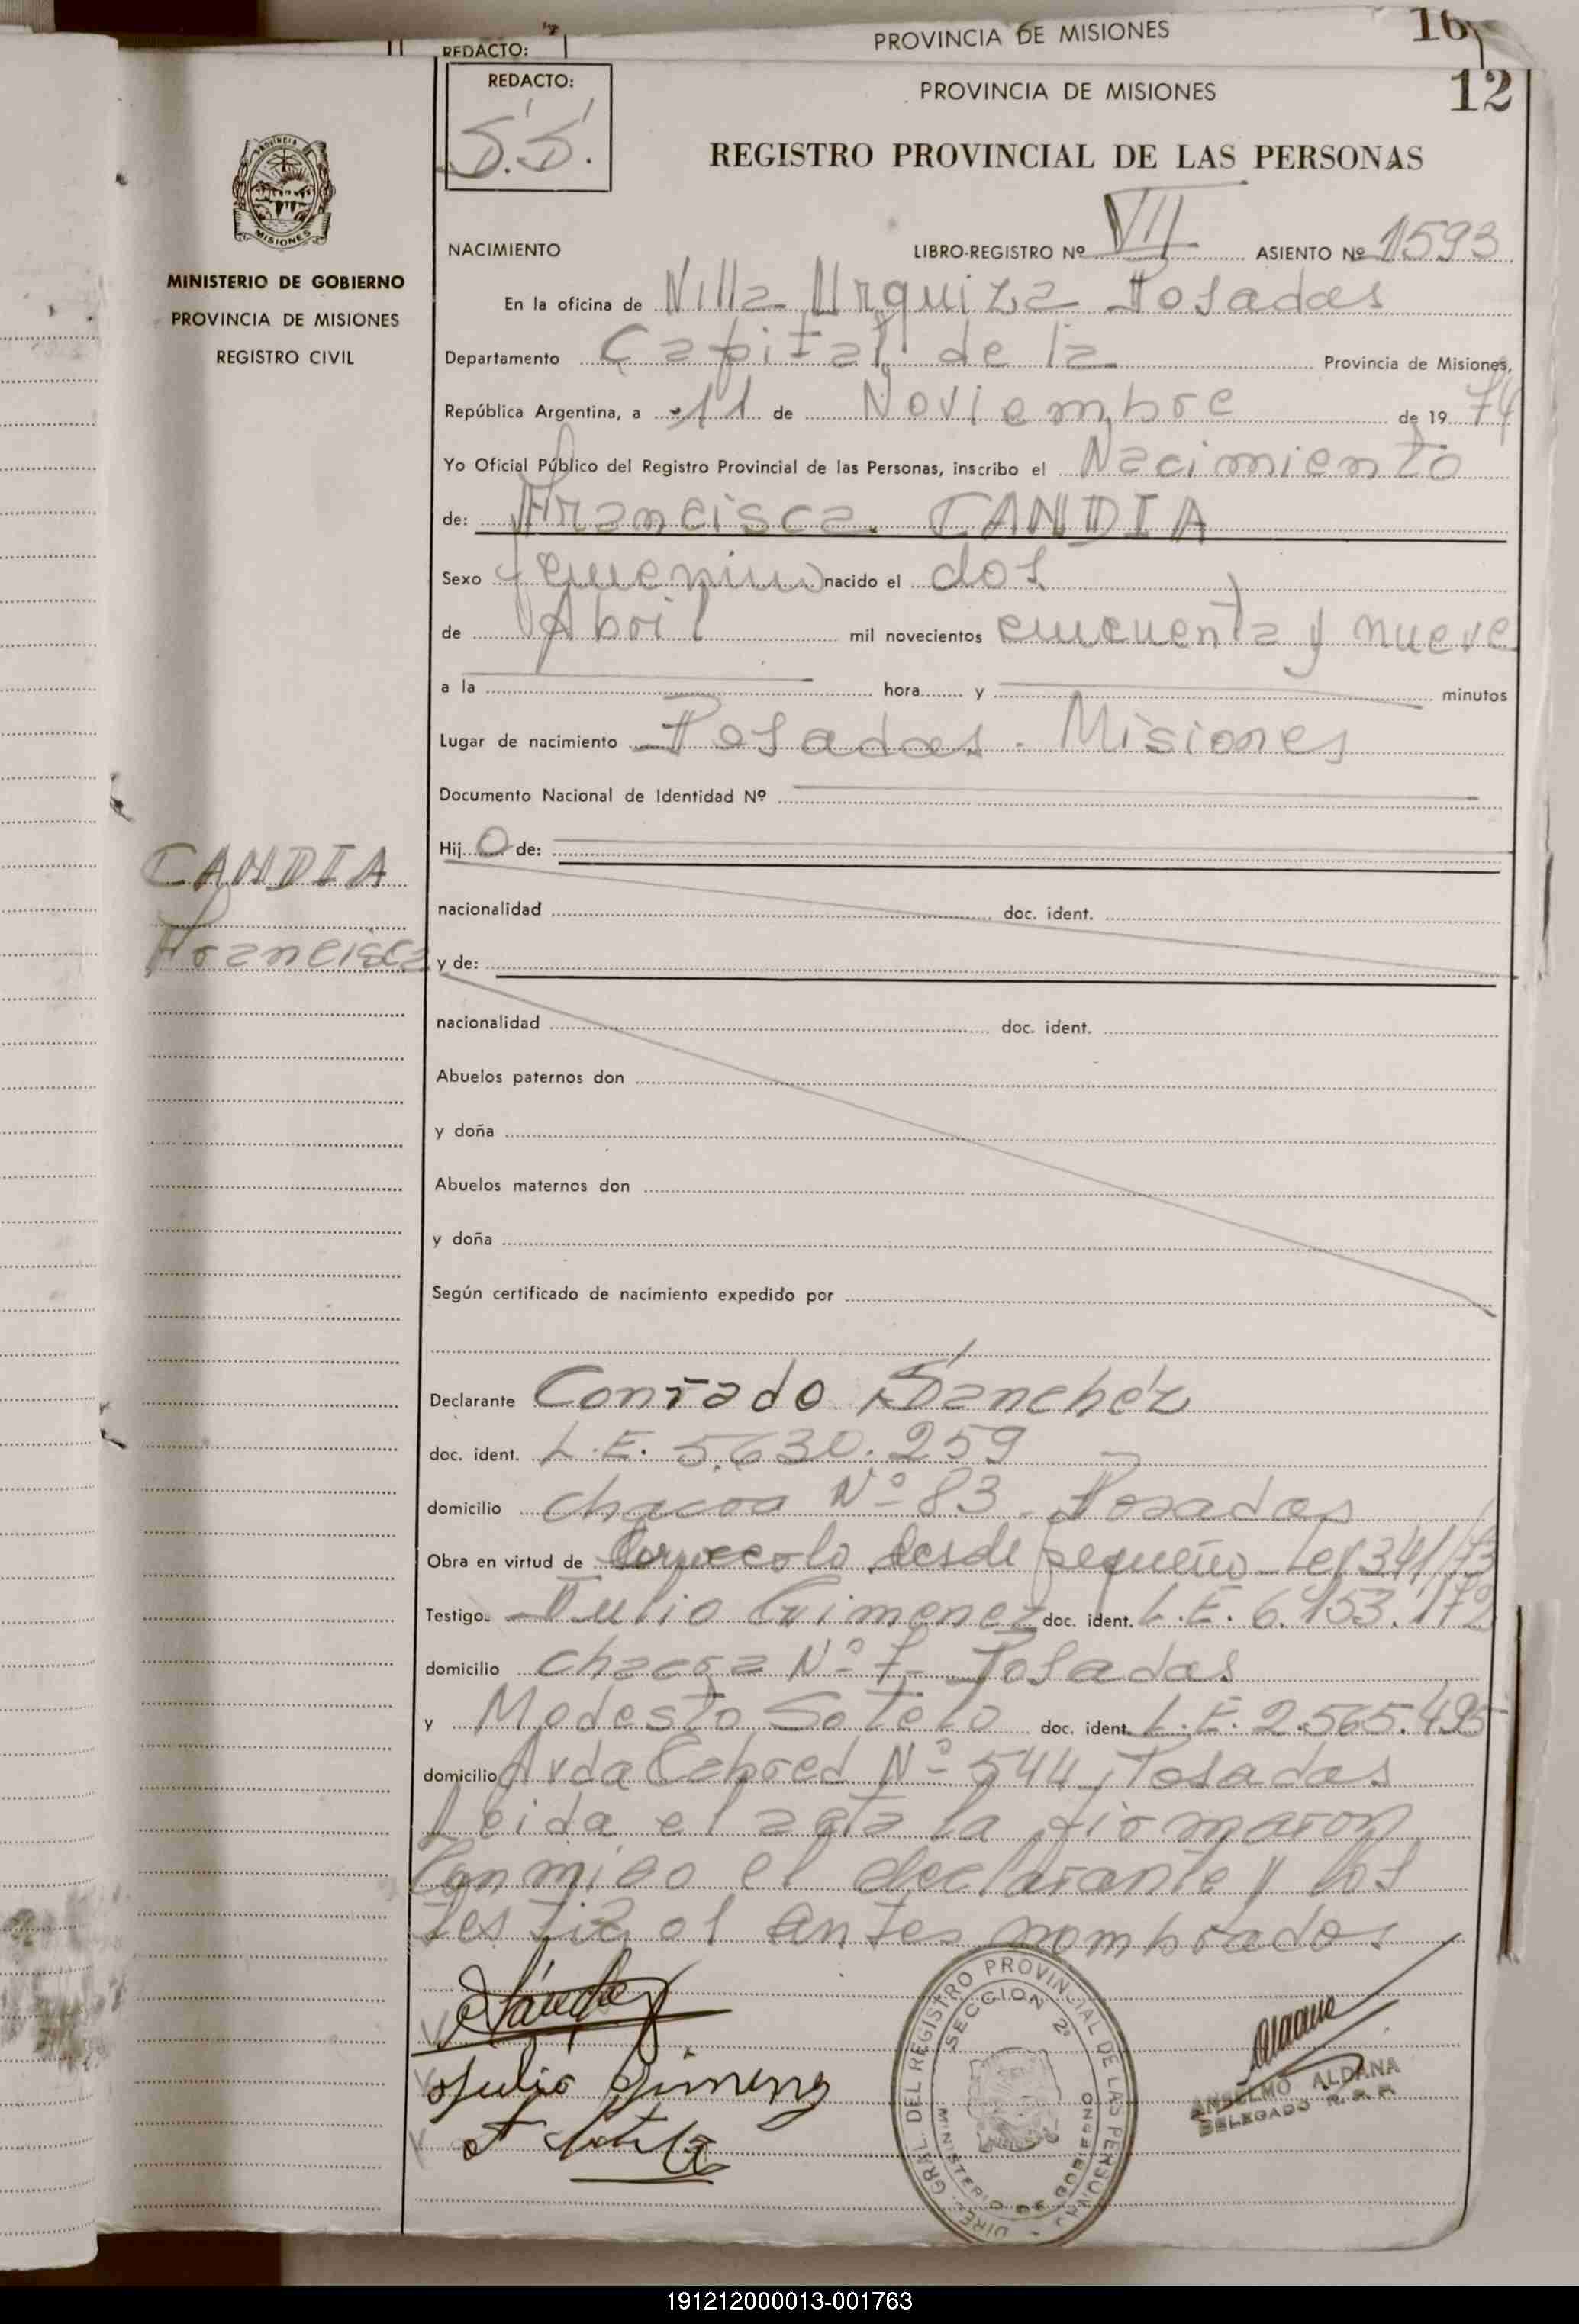 REDACTO:
PROVINCIA DE MISIONES
16
REDACTO:
S.S.
PROVINCIA DE MISIONES
12
REGISTRO PROVINCIAL DE LAS PERSONAS
MISIONES
MINISTERIO DE GOBIERNO
PROVINCIA DE MISIONES
REGISTRO CIVIL
NACIMIENTO LIBRO-REGISTRO Nº VII ASIENTO Nº 1593
En la oficina de Villa Urquiza Posadas
Departamento Capital de la Provincia de Misiones,
República Argentina, a 11 de Noviembre de 19 74
Yo Oficial Público del Registro Provincial de las Personas, inscribo el Nacimiento
de: Francisca CANDIA
Sexo femenino nacido el dos
de Abril mil novecientos cincuenta y nueve
a la hora y minutos
Lugar de nacimiento Posadas - Misiones
Documento Nacional de Identidad Nº
Hij o de:
CANDIA
nacionalidad doc. ident.
Francisca
y de:
nacionalidad doc. ident.
Abuelos paternos don
y doña
Abuelos maternos don
y doña
Según certificado de nacimiento expedido por
Declarante Conrado Sánchez
doc. ident. L.E. 5.630.259
domicilio chacra Nº 83 - Posadas
Obra en virtud de desde pequeño Ley 341/73
Testigo Julio Gimenez doc. ident. L.E. 6.153.172
domicilio chacra Nº 7 - Posadas
y Modesto Sotelo doc. ident. L.E. 2.565.495
domicilio Avda Cabred Nº 544, Posadas
leida el acta la firmaron
Conmigo el declarante y los
testigos antes nombrados
Sánchez
Julio Gimenez
DIREC. GRAL. DEL REGISTRO PROVINCIAL DE LAS PERSONAS
SECCION 2ª
MINISTERIO DE GOBIERNO
ANSELMO ALDANA
DELEGADO R. P. P.
191212000013-001763